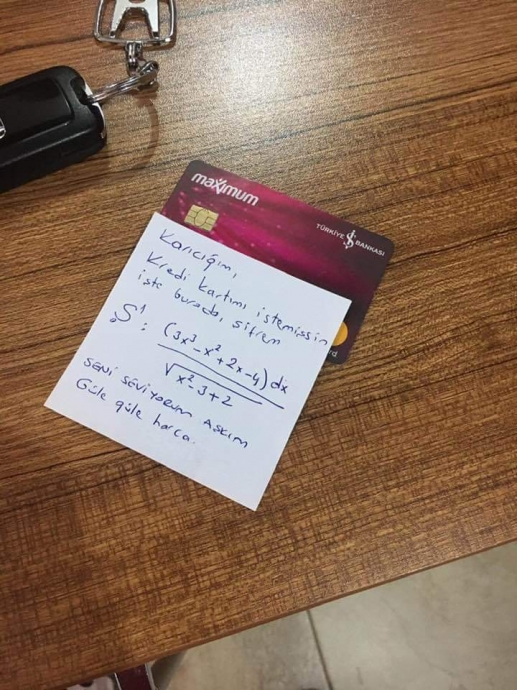 maximum
TÜRKİYE İŞ BANKASI
Karıcığım,
Kredi kartımı istemişsin
işte burada, şifren
∫₀¹ : (3x³-x²+2x-4)dx
√x²-3+2
seni seviyorum aşkım
Güle güle harca.
rd